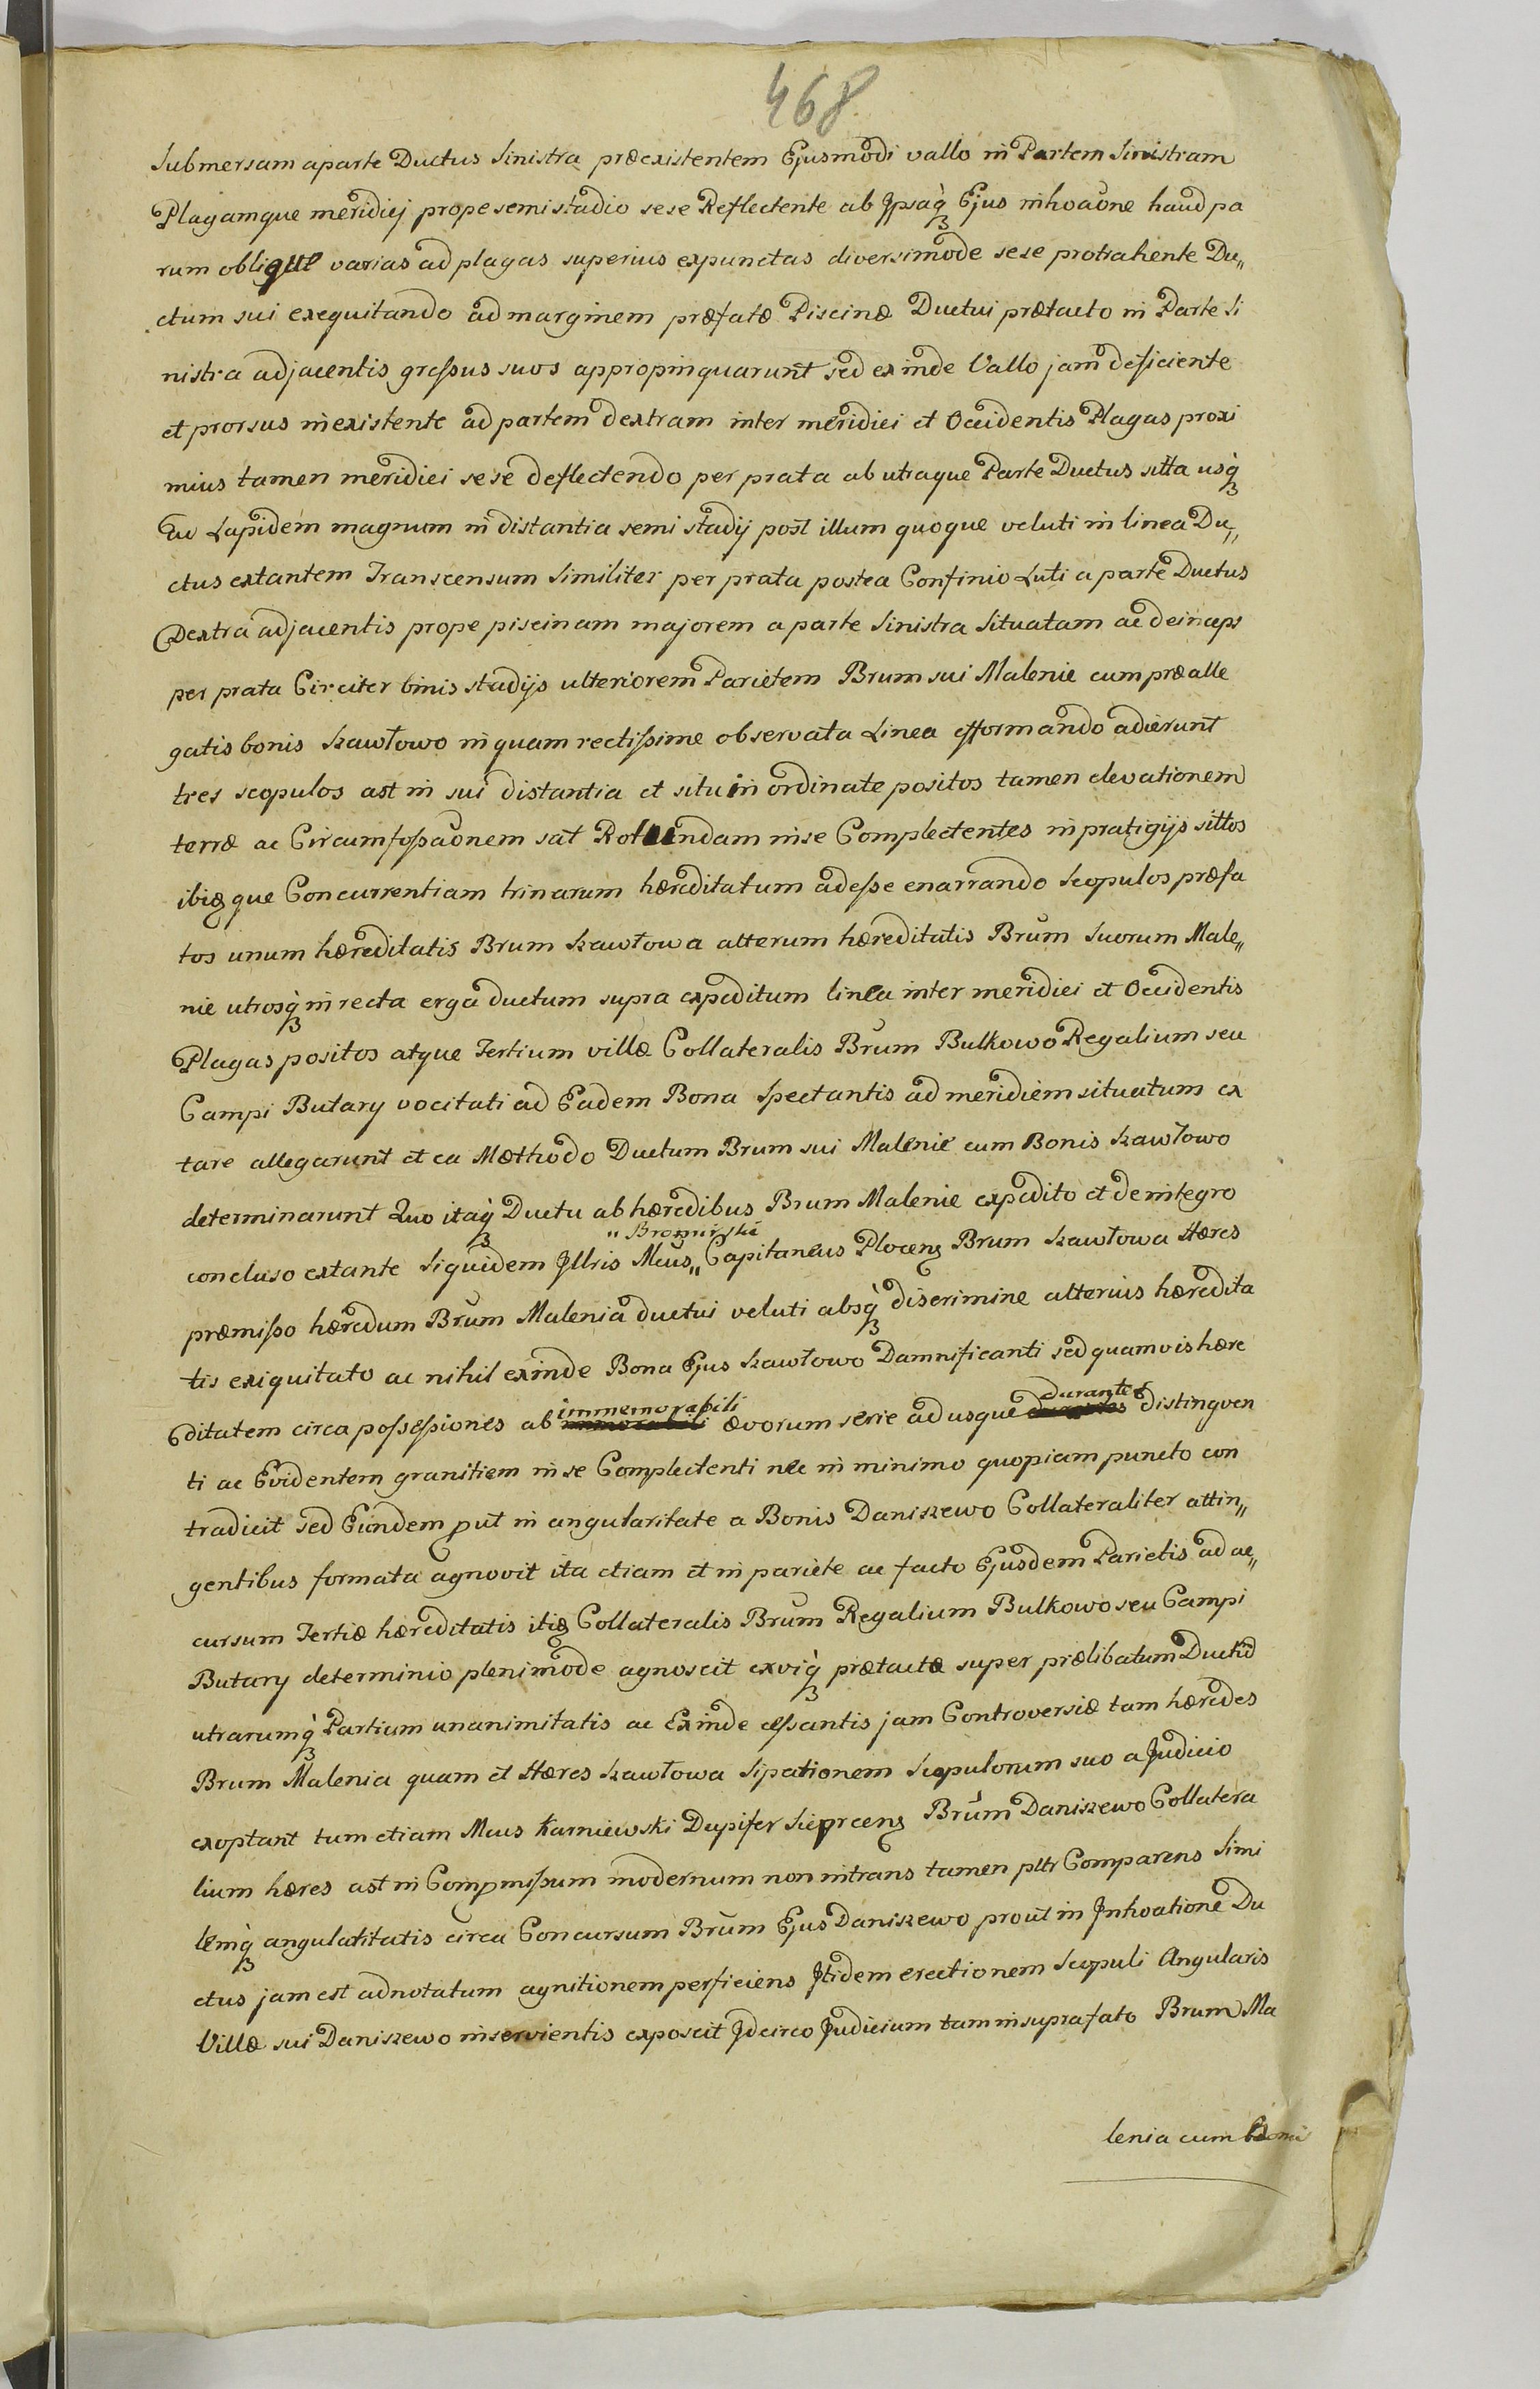 468
submersam a parte Ductus sinistra præexistentem Ejusmodi vallo in Partem sinistram
Plagamque meridiej prope semistadio sese Reflectente ab Ipsaq̀ Ejus inhoaõne haud pa
rum oblique varias ad plagas superius expunctas diversimode sese protrahente Du„
ctum sui exequitando ad marginem præfatæ Piscinæ Ductui prætacto in Parte si
nistra adjacentis greſsus suos appropinquarunt sed exinde Vallo jam deficiente
et prorsus inexistente ad partem dextram inter meridiei et Occidentis Plagas proxi
mius tamen meridiei sese deflectendo per prata ab utraque Parte Ductus sitta usq̀
Lapidem magnum in distantia semi stadij post illum quoque veluti in linea Du„
ctus extantem Transcensum similiter per prata postea Confinio Luti a parte Ductus
Dextra adjacentis prope piscinam majorem a parte sinistra situatam ac deinceps
per prata Circiter binis stadijs ulteriorem Parietem Brum sui Malenie cum præalle
gatis bonis Szawłowo in quam rectiſsime observata Linea efformando adierunt
tres scopulos ast in sui distantia et situ in ordinate positos tamen elevationem
terræ ac Circumfoſsaõnem sat Rotundam in se Complectentes in pratigijs sittos
ibiq̃ que Concurrentiam trinarum hæreditatum adeſse enarrando scopulos præfa
tos unum hæreditatis Brum Szawłowa alterum hæreditatis Brum suorum Male„
nie utrosq̀ in recta erga ductum supra expeditum linea inter meridiei et Occidentis
Plagas positos atque Tertium villæ Collateralis Brum Bulkowo Regalium seu
Campi Butary vocitati ad Eadem Bona spectantis ad meridiem situatum ex
tare allegarunt et ea Mæthodo Ductum Brum sui Malenie cum Bonis Szawłowo
determinarunt Quo itaq̀ Ductu ab hæredibus Brum Malenie expedito et de integro
„ Bromirski
concluso extante siquidem Illris Mcus„ Capitaneus Plocens Brum Szawłowa Hæres
præmiſso hæredum Brum Malenia ductui veluti absq̀ discrimine alterius hæredita
tis exiquitato ac nihil exinde Bona Ejus Szawłowo Damnificanti sed quamvis hære
immemorabili durantes
ditatem circa poſseſsiones ab ævorum serie ad usque distingven
ti ac Evidentem granitiem in se Complectenti nec in minimo quopiam puncto con
tradicit sed Eundem put in angularitate a Bonis Daniszewo Collateraliter attin„
gentibus formata agnovit ita etiam et in pariete ac facto Ejusdem Parietis ad ac„
cursum Tertiæ hæreditatis itiq̃ Collateralis Brum Regalium Bulkowo seu Campi
Butary determinio plenimode agnoscit exviq̀ prætactæ super prælibatum Ductũ
utrarumq̀ Partium unanimitatis ac Exinde ceſsantis jam Controversiæ tam hæredes
Brum Malenia quam et Hæres Szawłowa sipationem scopulorum suo a Judicio
exoptant tum etiam Mcus Karniewski Dapifer Sieprcens Brum Daniszewo Collatera
lium hæres ast in Compmiſsum modernum non intrans tamen pltr Comparens simi
lemq̀ angulatitatis circa Concursum Brum Ejus Daniszewo prout in Inhoatione Du
ctus jam est adnotatum agnitionem perficiens Itidem erectionem scopuli Angularis
Villæ sui Daniszewo inservientis exposcit Idcirco Judicium tam in suprafato Brum Ma
lenia cum Bonis